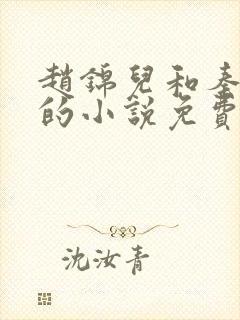 趙錦兒和秦
的小說免費
沈汝青